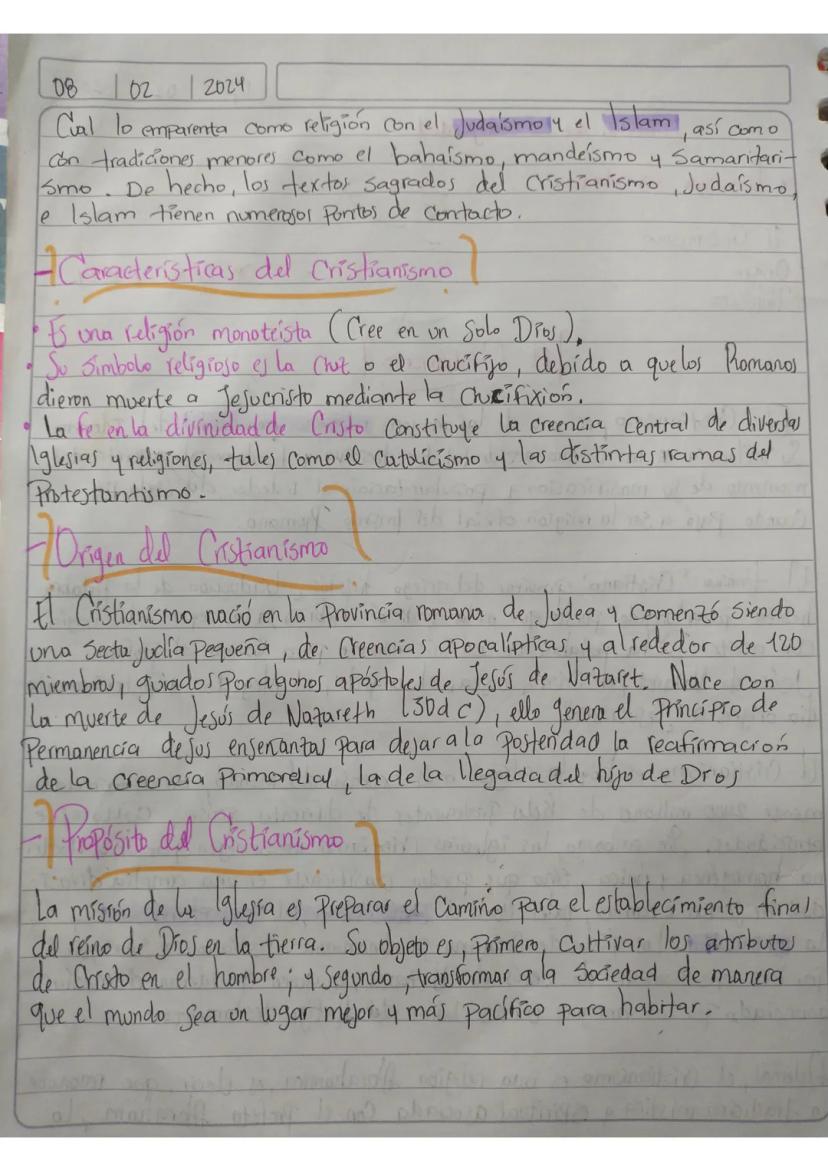 08 | 02 | 2024
Cual lo emparenta como religión con el Judaísmo y el Islam, así como
con tradiciones menores como el bahaísmo, mandeísmo y Samaritari-
smo. De hecho, los textos sagrados del Cristianismo, Judaísmo,
e Islam tienen numerosos Puntos de contacto.
- Características del Cristianismo
• Es una religión monoteista (Cree en un Solo Dios).
• Su Símbolo religioso es la Cruz o el Crucifijo, debido a que los Romanos
dieron muerte a Jesucristo mediante la Crucifixión.
• La fe en la divinidad de Cristo Constituye la creencia Central de diversas
Iglesias y religiones, tales como el Catolicismo y las distintas ramas del
Protestantismo.
- Origen del Cristianismo
El Cristianismo nació en la Provincia romana de Judea y Comenzó Siendo
una Secta Judía Pequeña, de Creencias apocalípticas y alrededor de 120
miembros, guiados por algunos apóstoles de Jesús de Nazaret. Nace con
la muerte de Jesús de Nazareth (30d c), ello genera el Principio de
Permanencia de sus enseñanzas para dejar a la Posteridad la reafirmación
de la creencia Primordial, la de la llegada del hijo de Dios
- Propósito del Cristianismo
La misión de la Iglesia es Preparar el Camino para el establecimiento final
del reino de Dios en la tierra. Su objeto es, Primero, Cultivar los atributos
de Cristo en el hombre; y Segundo, transformar a la Sociedad de manera
que el mundo Sea un lugar mejor y más Pacífico para habitar.